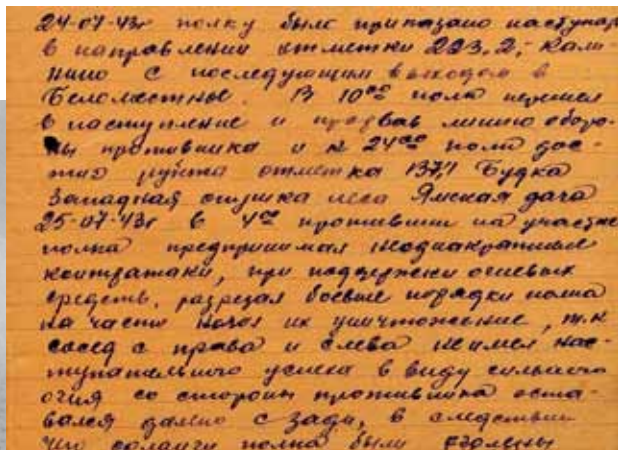 24-07-43г полку было приказано наступать
в направлении отметки 223,2, Кали-
нино с последующим выходом в
Беломестные. В 10⁰⁰ полк перешел
в наступление и прорвав линию оборо-
ны противника и к 24⁰⁰ полк дос-
тиг рубежа отметка 137,1 Будка
Западная опушка леса Ямская дача
25-07-43г в 4⁰⁰ противник на участке
полка предпринимая неоднакратные
контратаки, при поддержки огневых
средств, разрезал боевые порядки полка
на части начал их уничтожение, т.к
сосед с права и слева неимел нас-
тупательного успеха в виду сильного
огня со стороны противника оста-
вался далеко с зади, в следствии
чего солдаты полка были